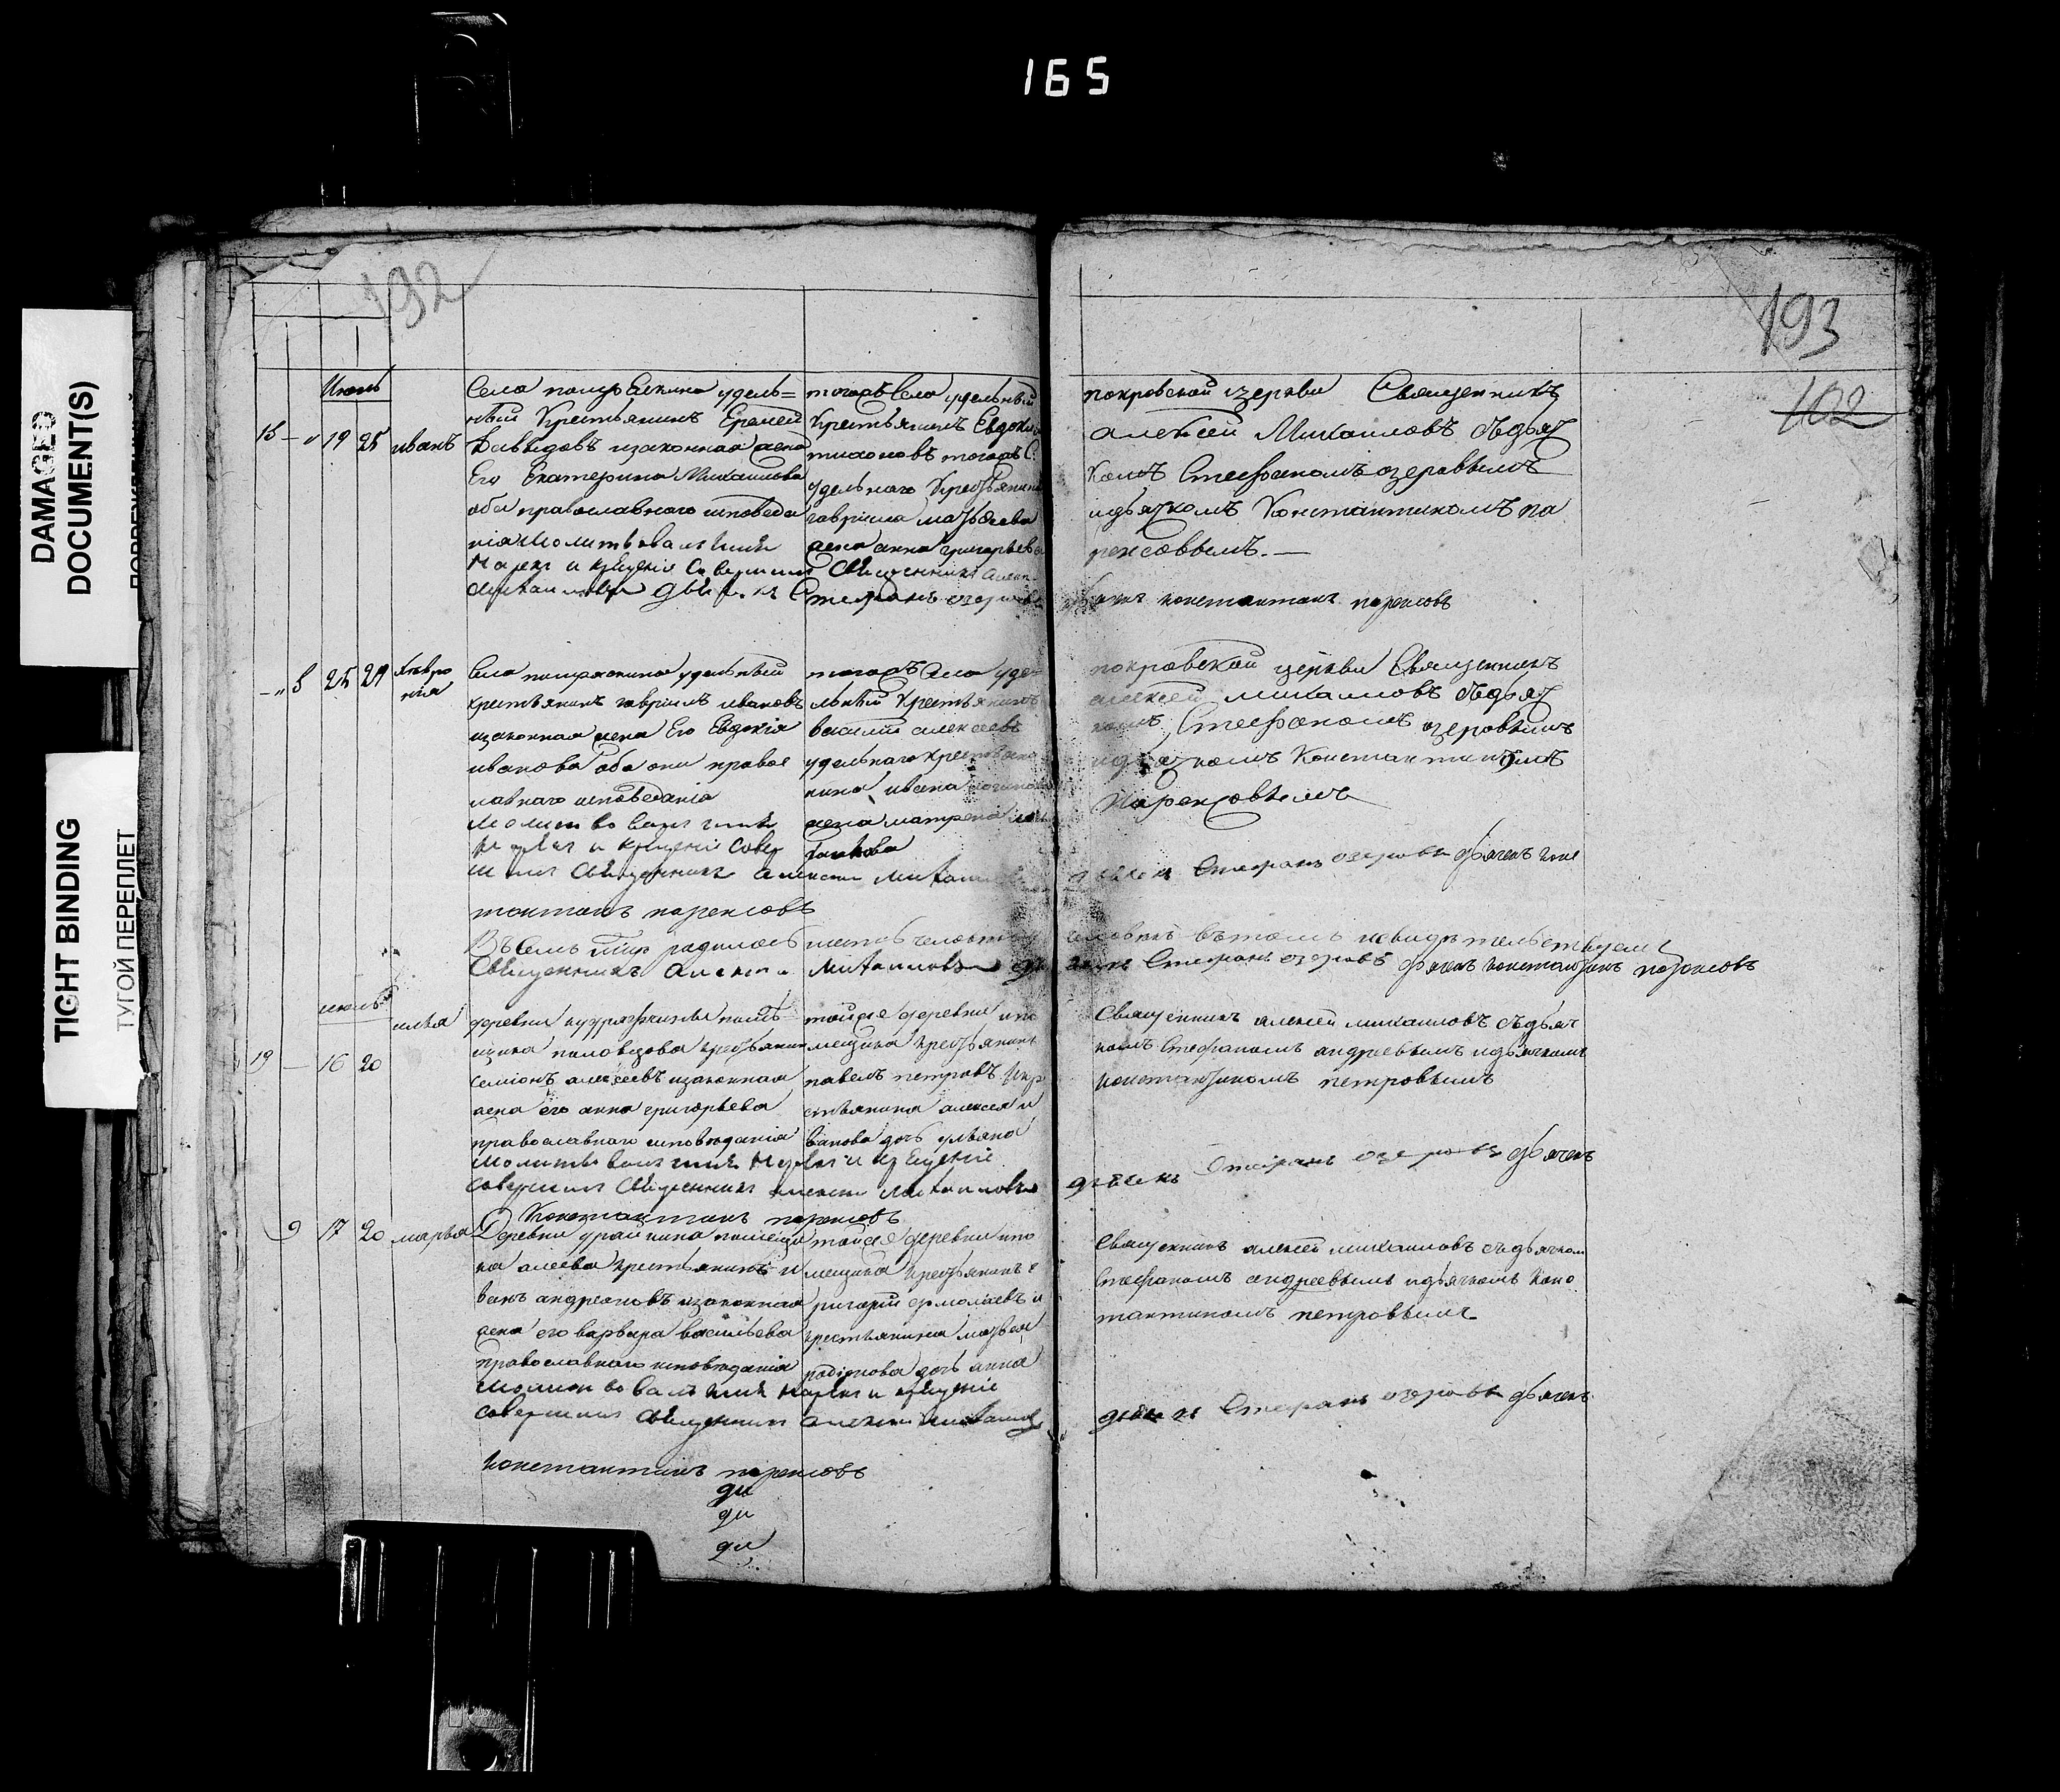 165
DAMAGED
DOCUMENT(S)
TIGHT BINDING
ТУГОЙ ПЕРЕПЛЕТ
192
193
102
Июнь
15 – „ 19 25 иванъ
Села удель=
ный Крестьянинъ Еремей
Давыдовъ изаконная жена
Его Екатерина Михаилова
оба православнаго исповеда
нія Молитвовалъ имя
Нарекъ и крещеніе Совершилъ Священникъ
Стефанъ озеровъ
тогожъ Села удельный
Крестьянинъ Евдоким
тихоновъ тогожъ С.
удельнаго Крестьянина
гавріила матвеева
жена анна григорьева
покровской церкви Священникъ
алексей Михаиловъ съдьяч
комъ Стефаномъ озеровымъ
идьячкомъ Константиномъ па
ренсовымъ. —
константинъ паренсовъ
– „ 8 25 29 Февро
нія
Села удельный
крестьянинъ гавріилъ ивановъ
изаконная жена Его Евдокія
иванова оба они правос
лавнаго исповеданія
Молитвовалъ имя
Нарекъ и крещеніе Совер
шилъ Священникъ алексей Михаиловъ
константинъ паренсовъ
тогожъ Села уде
льный Крестьянинъ
василій алексеевъ
удельнаго крестьяни
нина ивана
жена матрена
покровской церкви Священникъ
алексей михаиловъ съдьяч
комъ Стефаномъ озеровымъ
идьячкомъ Константиномъ
Паренсовымъ
дьячекъ Стефанъ озеровъ дьячекъ конс
Въ Семъ родилось
въ томъ исвидетельствуемъ
Священникъ Алексей Михаиловъ
Стефанъ озеровъ дьячекъ константинъ паренсовъ
июль
19 – 16 20 илья
деревни помѣ
щика половцова крестьянин
семіонъ алексеевъ изаконная
жена его анна григорьева
православнаго исповѣданія
Молитвовалъ имя Нарекъ и крещеніе
Совершилъ Священникъ алексей Михаиловъ
Константинъ паренсовъ
тойже деревни ипо
мещика крестьянинъ
павелъ петровъ икр
стьянина алексея и
ванова дочь ульяна
Священникъ алексей михаиловъ съдьяч
комъ Стефаномъ андреевымъ идьячкомъ
константиномъ петровымъ
дьячекъ Стефанъ озеровъ дьячекъ
9 17 20 марья
Деревни помещи
ка алеева крестьянинъ и
ванъ андреяновъ изаконная
жена его варвара васильева
православнаго исповѣданія
Молитвовалъ имя Нарекъ и крещеніе
Совершилъ Священникъ Алексей Михаиловъ
константинъ паренсовъ
тойже деревни ипо
мещика крестьянинъ г
ригорій ермолаевъ и
крестьянина матвея
родіонова дочь анна
Священникъ алексей михаиловъ съдьячком
Стефаномъ андреевымъ идьячкомъ Конс
тантиномъ петровымъ
дьячекъ Стефанъ озеровъ дьячекъ